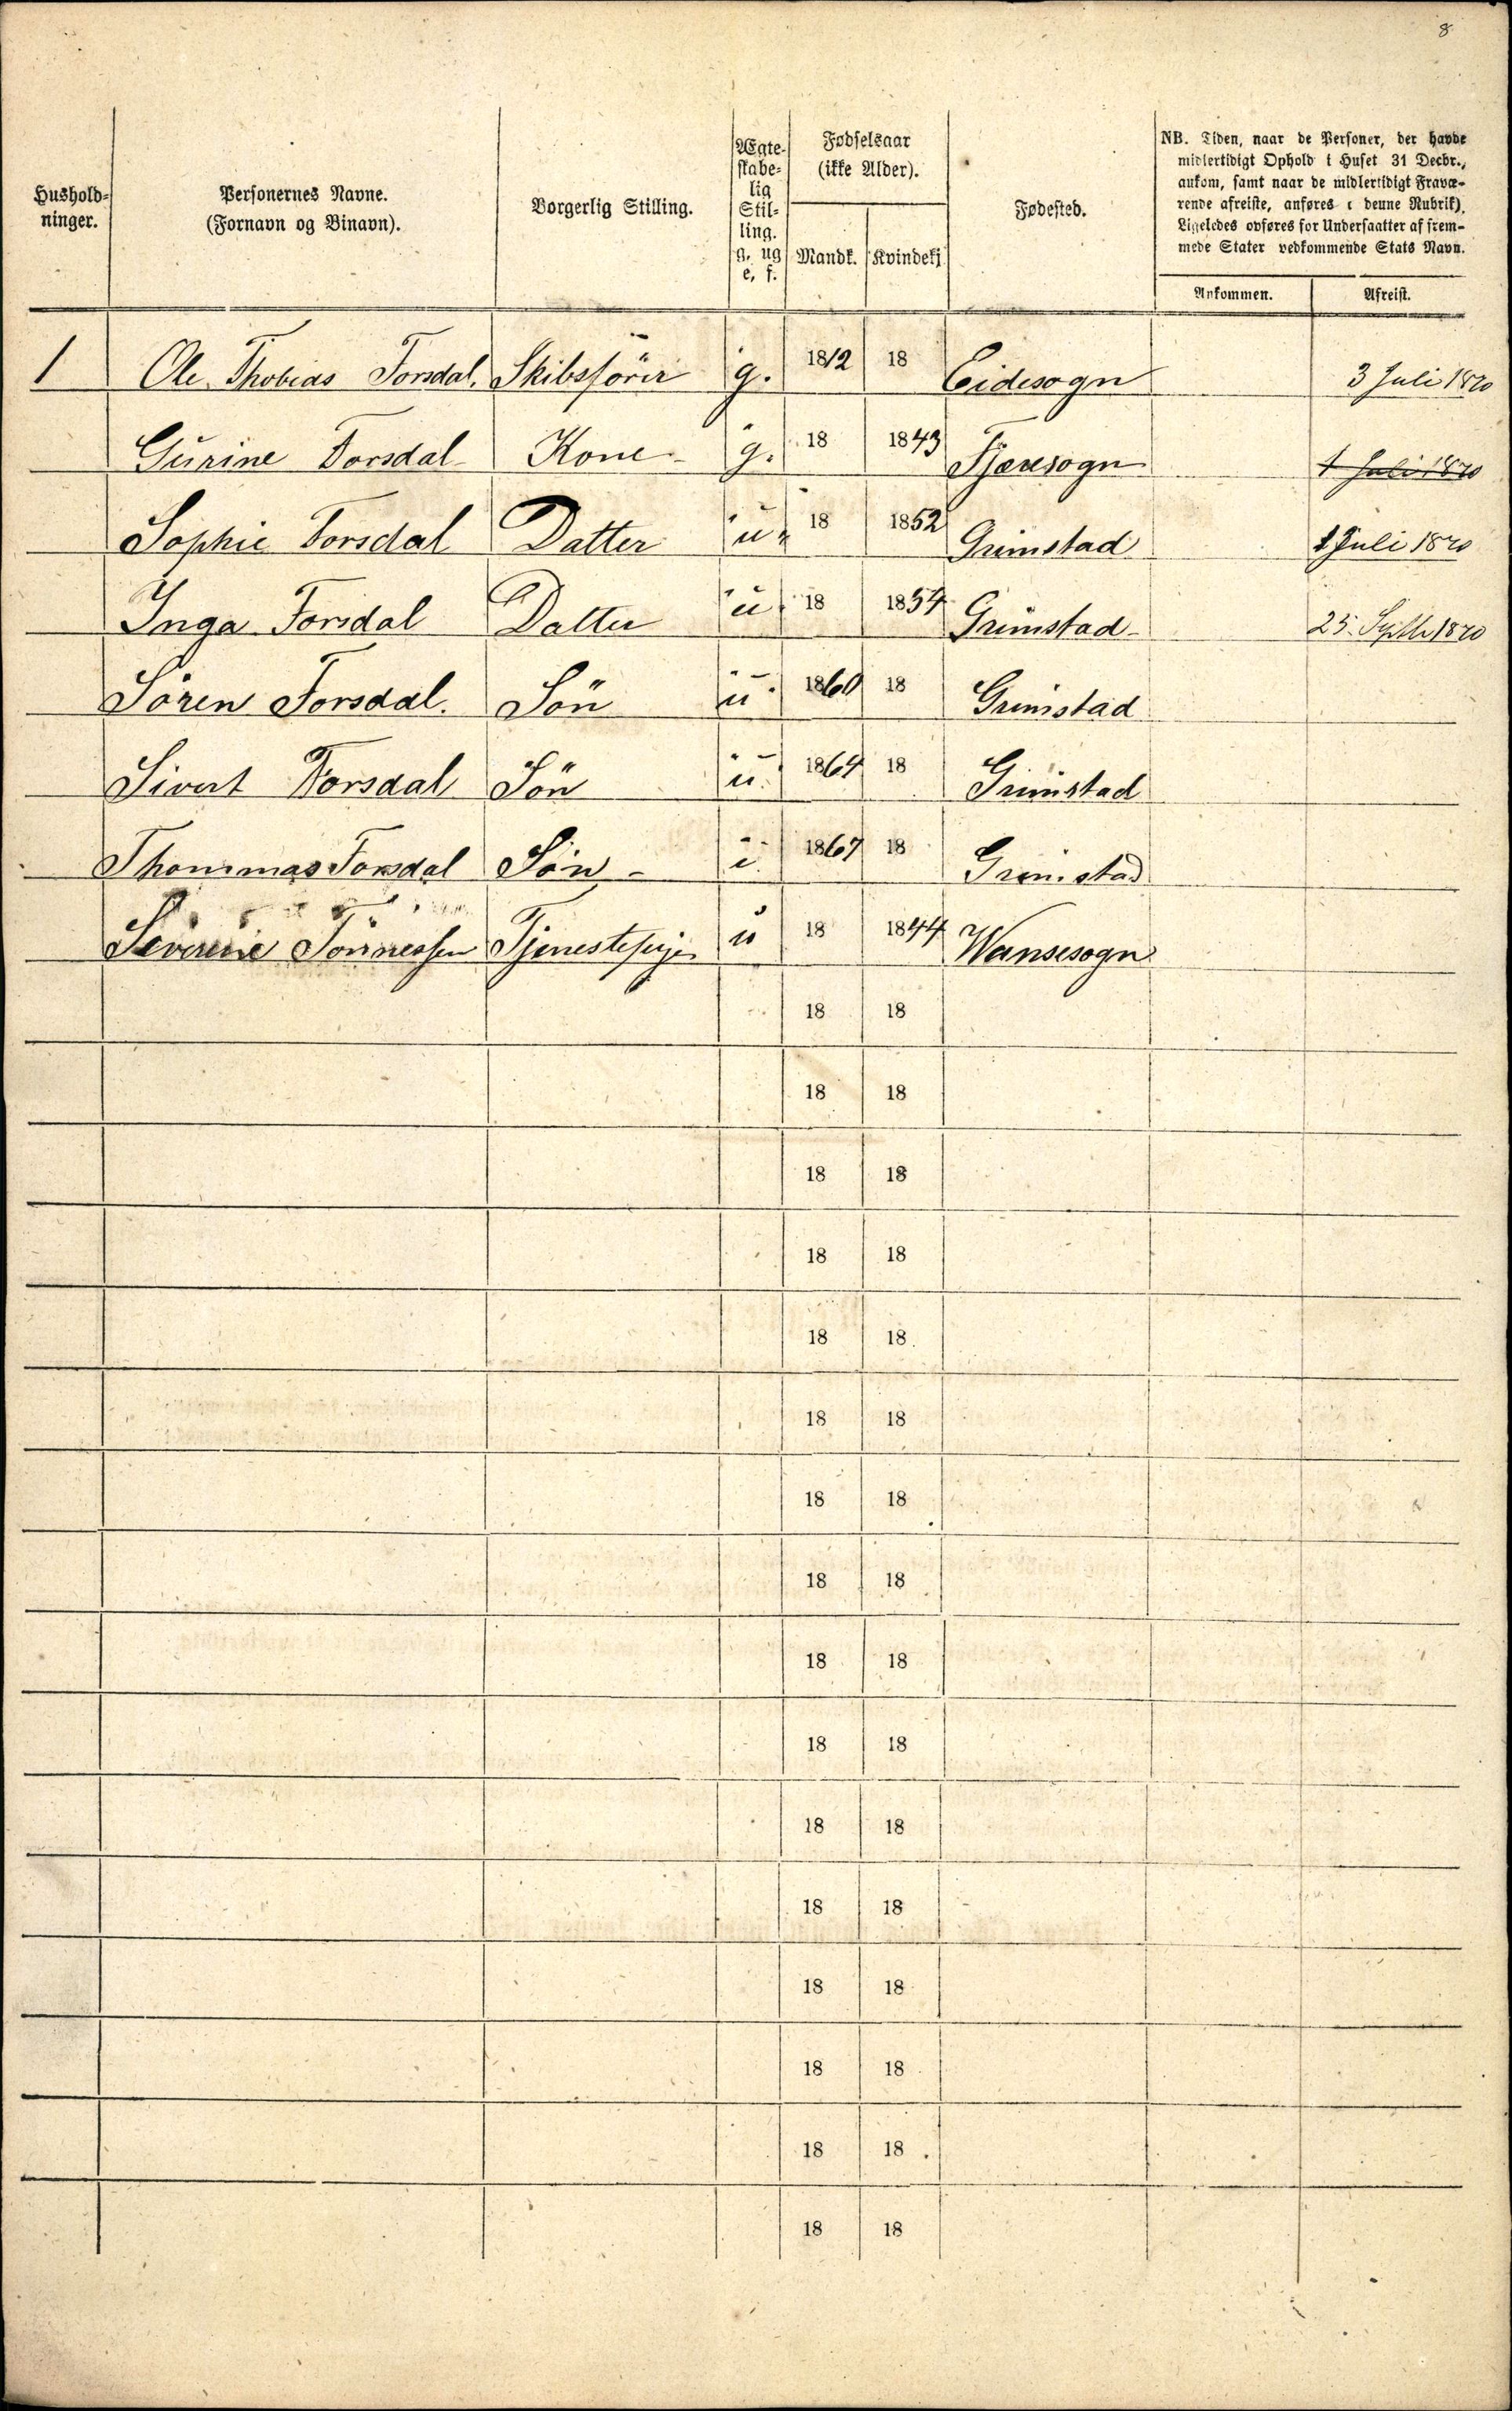 8
Hushold-
ninger.
Personernes Navne.
(Fornavn og Binavn).
Borgerlig Stilling.
Ægte-
skabe-
lig
Stil-
ling.
g. ug
e, f.
Fødselsaar
(ikke Alder).
Mandk. Kvindekj
Fødested.
NB. Tiden, naar de Personer, der havde
midlertidigt Ophold i Huset 31 Decbr.,
ankom, samt naar de midlertidigt Fravæ-
rende afreiste, anføres i denne Rubrik).
Ligeledes opføres for Undersaatter af frem-
mede Stater vedkommende Stats Navn.
Ankommen. Afreist.
1 Ole Thobias Torsdal. Skibsförer g. 1812 18 Eidesogn 3 Juli 1870
Gurine Torsdal Kone g. 18 1843 Fjæresogn 1 Juli 1870
Sophie Torsdal Datter u. 18 1852 Grimstad 1 Juli 1870
Inga Torsdal Datter u. 18 1854 Grimstad 25. Septbr 1870
Sören Torsdal. Sön u. 1860 18 Grimstad
Sivert Torsdal Sön u. 1864 18 Grimstad
Thommas Torsdal Sön u. 1867 18 Grimstad
Severine Tönnessen Tjenestepige u 18 1844 Wansesogn
18 18
18 18
18 18
18 18
18 18
18 18
18 18
18 18
18 18
18 18
18 18
18 18
18 18
18 18
18 18
18 18